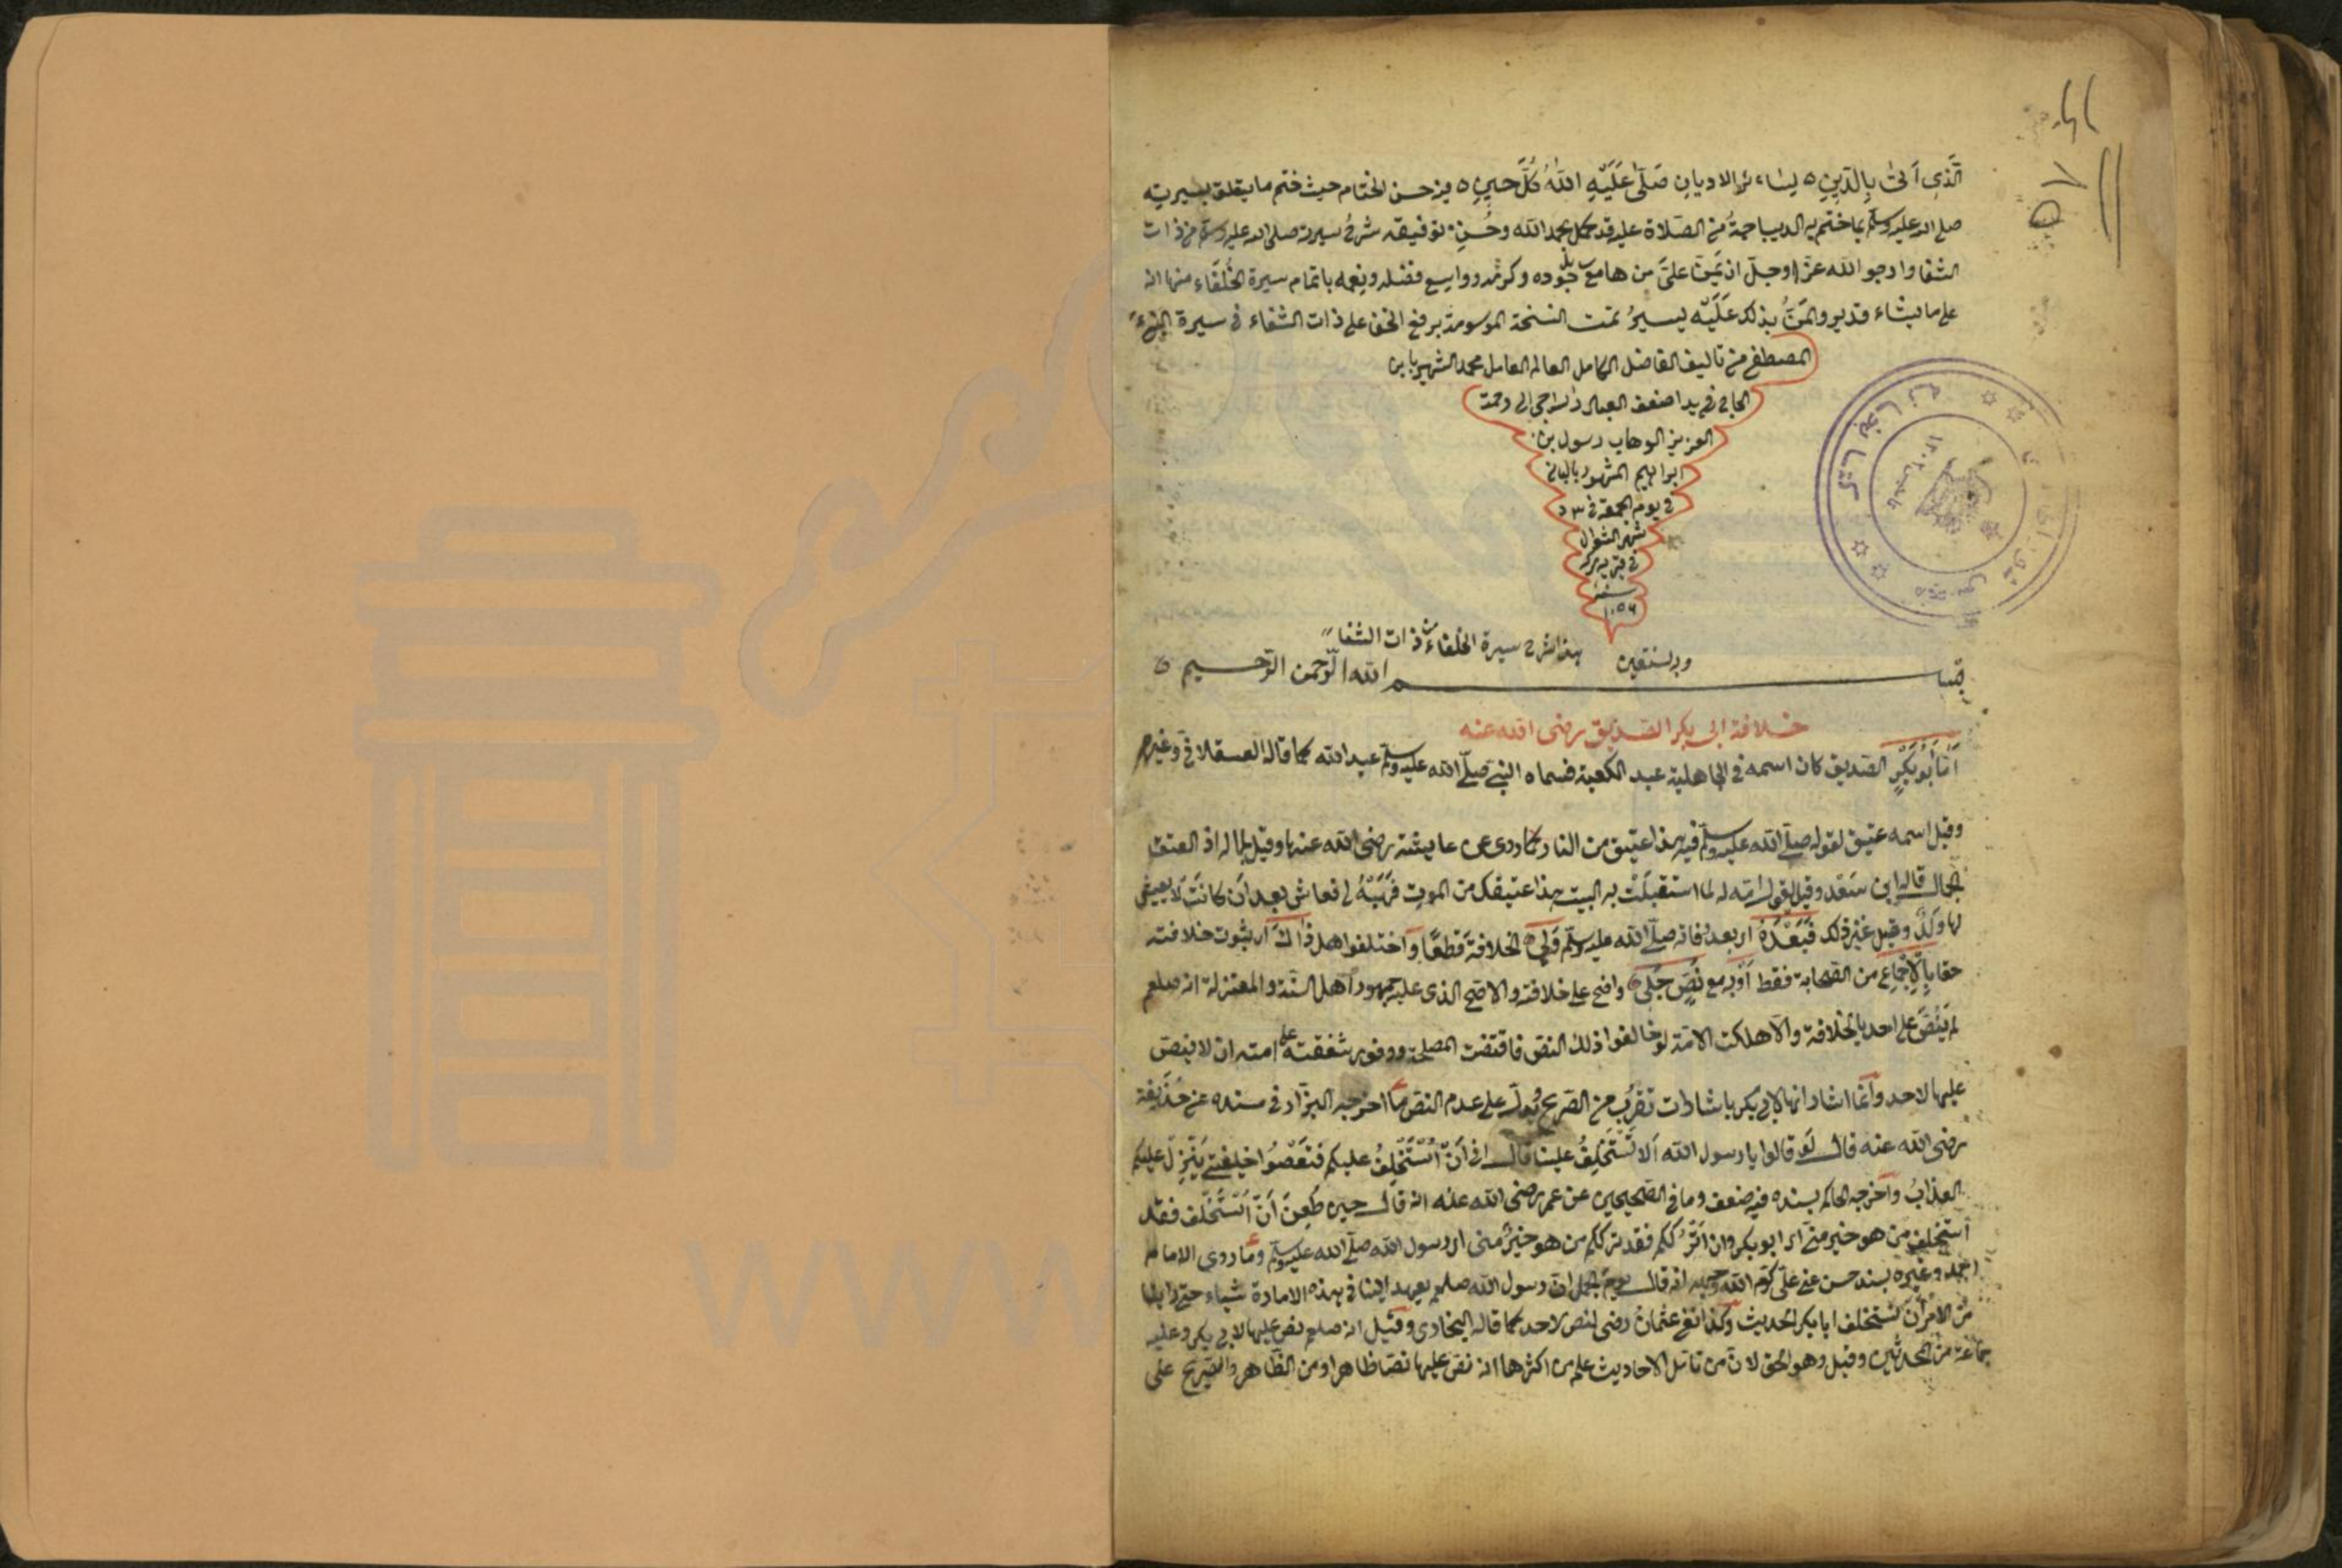 الَّذِي اَتٰى بِالدّينِ ليشاء الاديانِ صَلّى عَلَيْهِ اللهُ كُلَّ حِينٍ من حسن الختام حيث ختم ما يتعلق بسيرته
صلى الله عليه وسلم بما ختم به الديباجة من الصلاة عليه قد كمل بحمد الله وحُسنِ توفيقه شرحُ سيرته صلى الله عليه وسلم من ذات
الشفا وارجو الله عزّ وجلّ ان يَمنّ علىّ من هامع جُوده وكرمه وواسع فضله ونعمه باتمام سيرة الخُلَفَاء منها انه
على ما يشاء قدير والمَنُّ بذلك عَلَيْه يسيرُ تمت النسخة الموسومة برفع الخفا على ذات الشفاء فى سيرة النبىّ
المصطفى من تاليف الفاضل الكامل العالم العامل محمد الشهير بابن
الحاجى فى يد اضعف العباد الراجى الى رحمة
العزيز الوهاب رسول بن
ابراهيم المشهور
فى يوم الجمعة فى
شهر الشوال
فى قرية
سنة
١٠٥٦
وبه نستعين هذا شرح سيرة الخلفاء من ذات الشفا
بسم الله الرّحمن الرّحيم
خلافة ابى بكر الصديق رضى الله عنه
اَمّا اَبُو بَكْرٍ الصديق كان اسمه فى الجاهلية عبد الكعبة فسماه النبى صلّى الله عليه وسلم عبد الله كما قاله العسقلانى وغيره
وقيل اسمه عتيق لقوله صلّى الله عليه وسلم فيه هذا عتيق من النار كما روى عن عايشة رضى الله عنها وقيل لجماله اذ العتق
الجمال قاله ابن سَعْد وقيل لقول امّه له لما استقبلَتْ به البيت هذا عتيقك من الموت فهَبْهُ لى فعاش بعد اَن كانَتْ لا يعيش
لها وَلَدٌ وقيل غير ذلك فَبَعْدَهُ اى بعد وفاته صلّى الله عليه وسلم وَلِىَ الخلافةَ قَطعًا وَاختلفوا هل ذاك اى ثبوت خلافته
حقا بِالاِجْمَاعِ من الصحابة فقط اَوْ به مع نَصٍّ جَلِىّ واضح على خلافته والاصح الذى عليه جمهور اهل السنّة والمعتزلة انه صلعم
لم يَنُصَّ على احد بالخلافة والّا هلكت الامّة لو خالفوا ذلك النص فاقتضت المصلحة ووفور شفقته على امته ان لا ينص
عليها لاحد وانما اشار انها لابى بكر باشارات تقرُب من الصريح يُدلّ على عدم النص ما اخرجه البزّار فى مسنده عن حُذَيفة
رضى الله عنه قال قالوا يا رسول الله اَلا تَسْتَخْلِفُ علينا قال انى اَنْ اَسْتَخْلِفُ عليكم فتَعْصُوا خليفتى يَنْزِلْ عليكم
العذابُ وَاخرجه الحاكم بسنده فيه ضعف وما فى الصحيحين عن عمر رضى الله عنه انه قال حين طُعِنَ اَنْ اَسْتَخْلِف فقد
اَستخلف من هو خير منى اى ابو بكر وان اَتْرُككم فقد ترككم من هو خيرٌ منى اى رسول الله صلّى الله عليه وسلم وما روى الامام
احمد وغيره بسند حسن عن علىّ كرّم الله وجهه انه قال يوم الجمل ان رسول الله صلعم لم يعهد الينا فى هذه الامارة شيئا حتى راينا
من الامر اَن نستخلف ابا بكر الحديث وكذا نفى عثمانُ رضى النص لاحد كما قاله البخارى وقيل انه صلعم نص عليها لابى بكر وعليه
جماعة من المحدثين وقيل وهو الحق لانّ من تامّل الاحاديث علم من اكثرها انه نصّ عليها نصّا ظاهرا ومن الظاهر والصّريح على